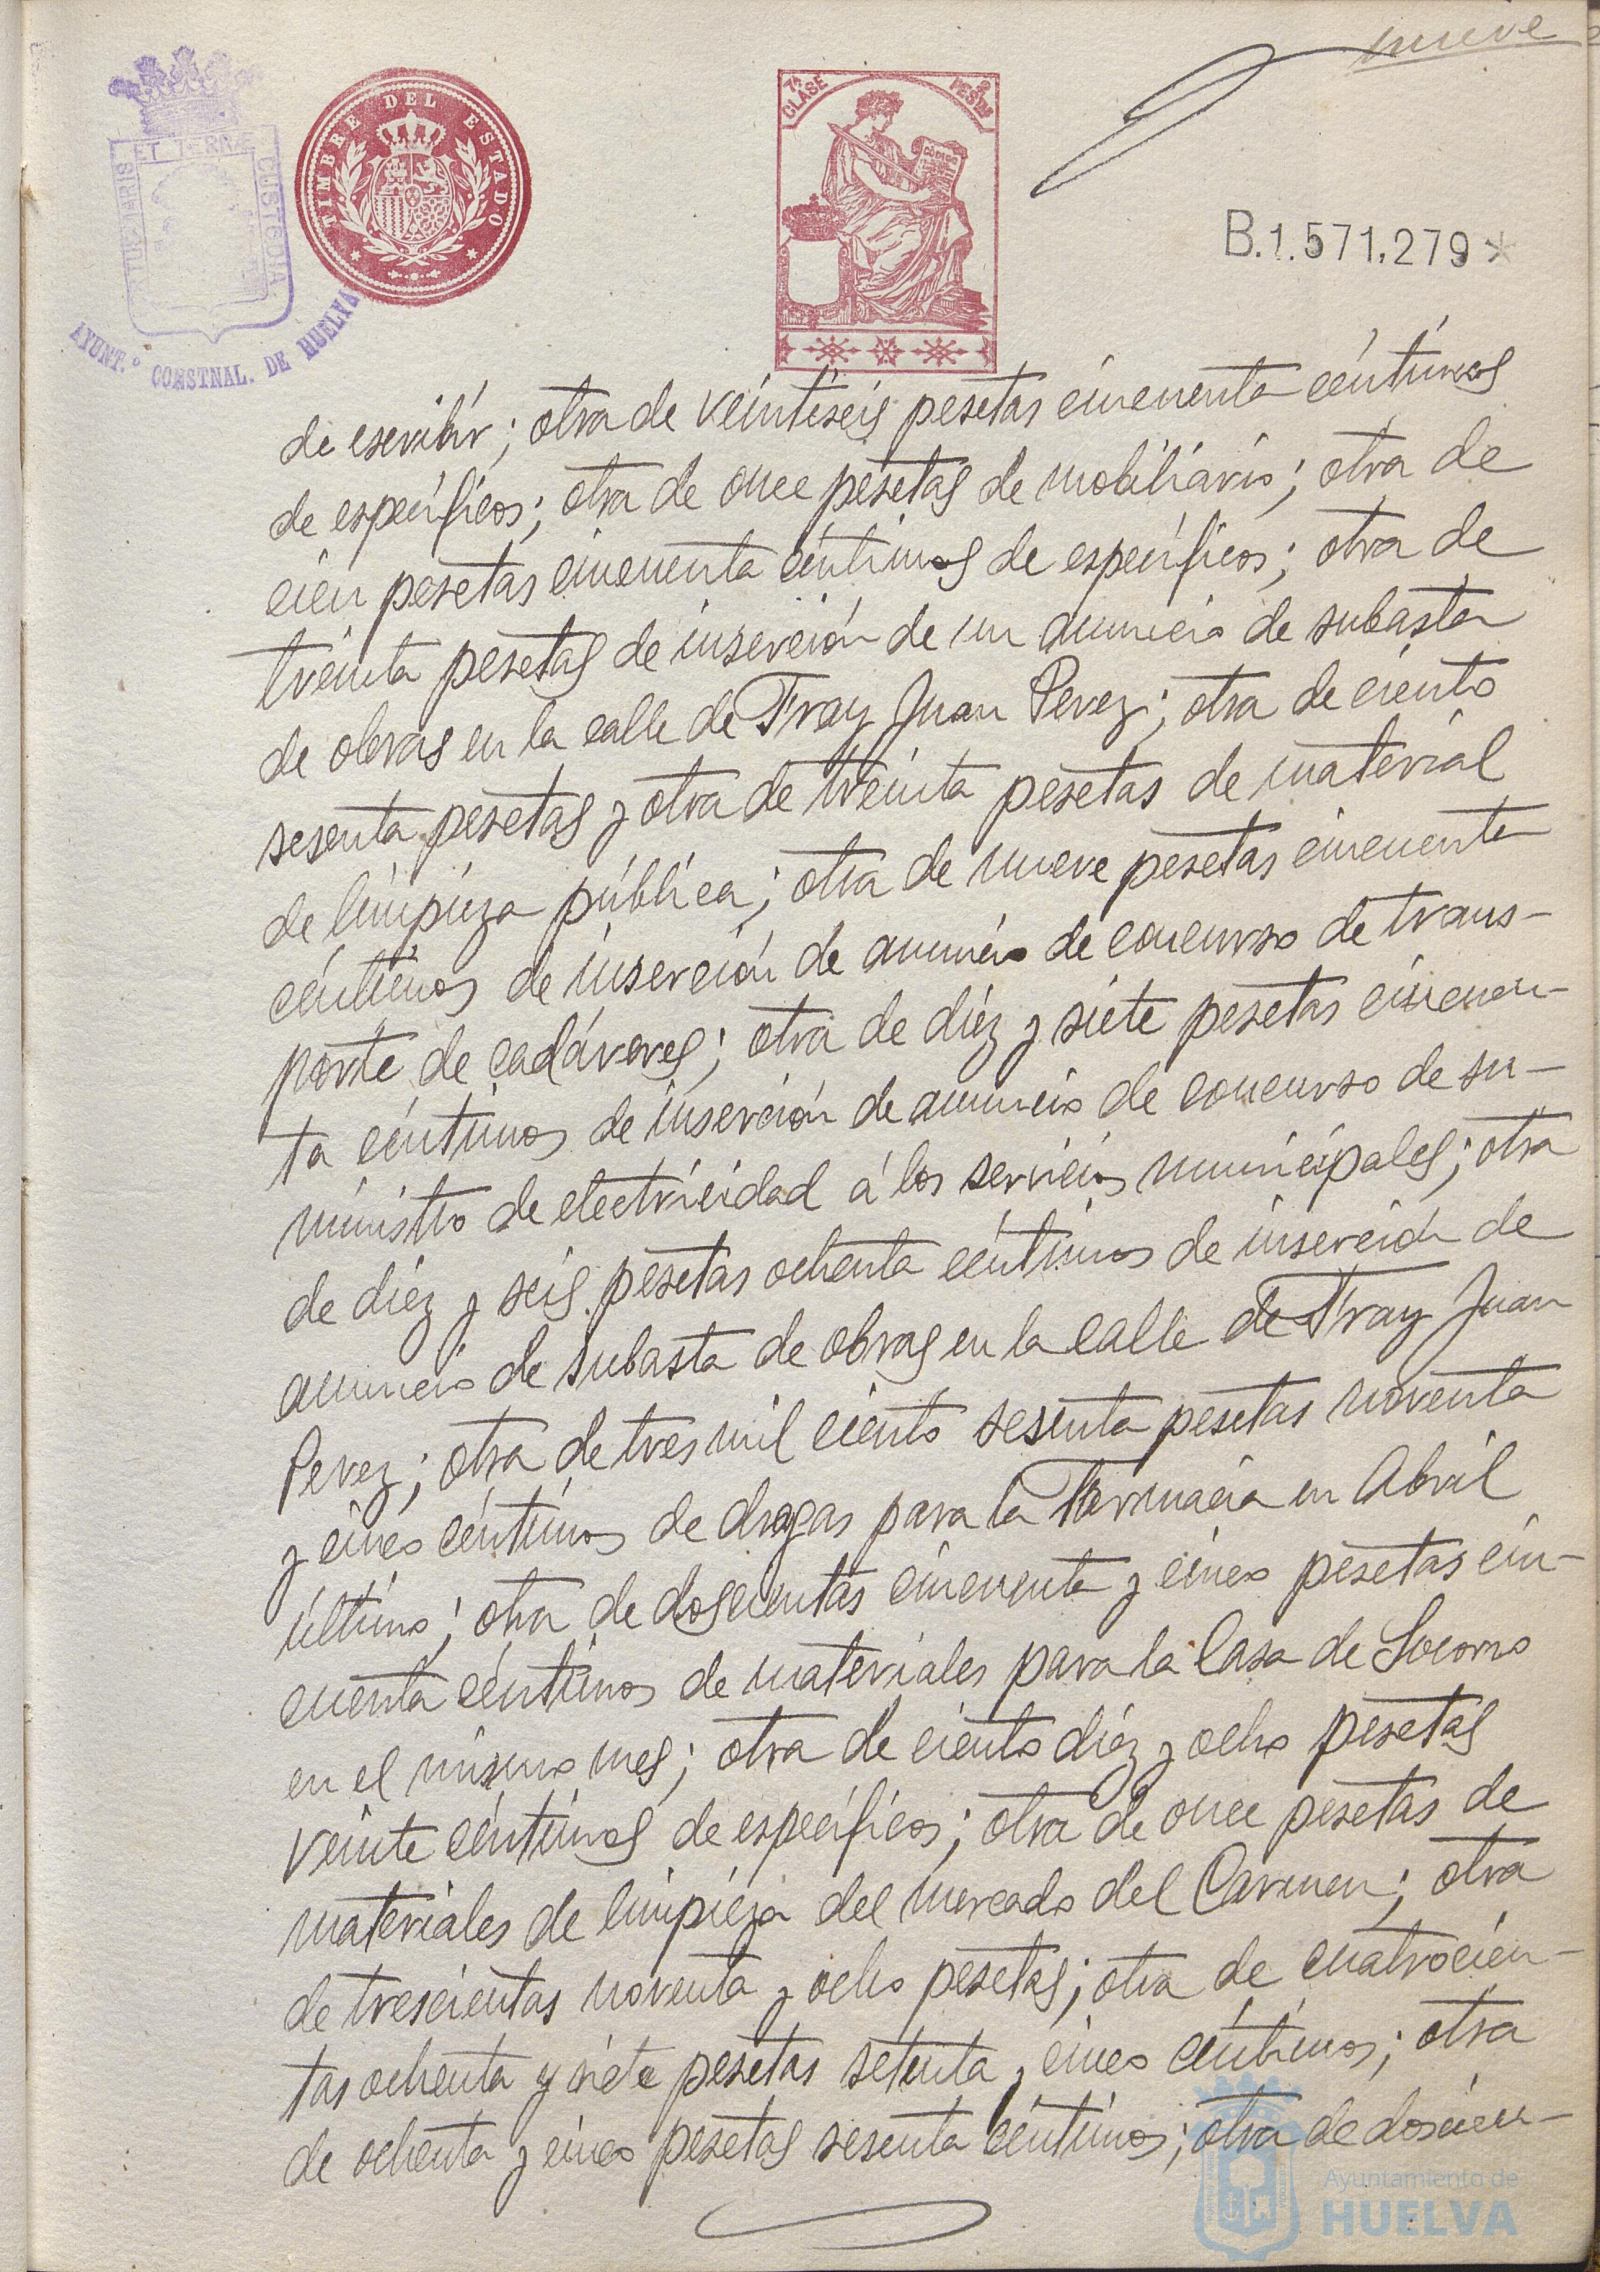 nueve
PORTUS MARIS ET TERRÆ CUSTODIA
AYUNT.º CONSTNAL. DE HUELVA
TIMBRE DEL ESTADO
7ª CLASE
PESTAS
CÓDIGO
B.1.571.279*
de escribir; otra de veintiseis pesetas cincuenta céntimos
de específicos; otra de once pesetas de mobiliario; otra de
cien pesetas cincuenta céntimos de específicos; otra de
treinta pesetas de inserción de un anuncio de subasta
de obras en la calle de Fray Juan Perez; otra de ciento
sesenta pesetas y otra de treinta pesetas de material
de limpieza pública; otra de nueve pesetas cincuenta
céntimos de inserción de anuncio de concurso de trans-
porte de cadáveres; otra de diez y siete pesetas cincuen-
ta céntimos de inserción de anuncio de concurso de su-
ministro de electricidad á los servicios municipales; otra
de diez y seis pesetas ochenta céntimos de inserción de
anuncio de subasta de obras en la calle de Fray Juan
Perez; otra de tres mil ciento sesenta pesetas noventa
y cinco céntimos de drogas para la Farmacia en Abril
último; otra de doscientas cincuenta y cinco pesetas cin-
cuenta céntimos de materiales para la Casa de Socorro
en el mismo mes; otra de ciento diez y ocho pesetas
veinte céntimos de específicos; otra de once pesetas de
materiales de limpieza del mercado del Carmen; otra
de trescientas noventa y ocho pesetas; otra de cuatrocien-
tas ochenta y siete pesetas setenta y cinco céntimos; otra
de ochenta y cinco pesetas sesenta céntimos; otra de doscien-
Ayuntamiento de
HUELVA